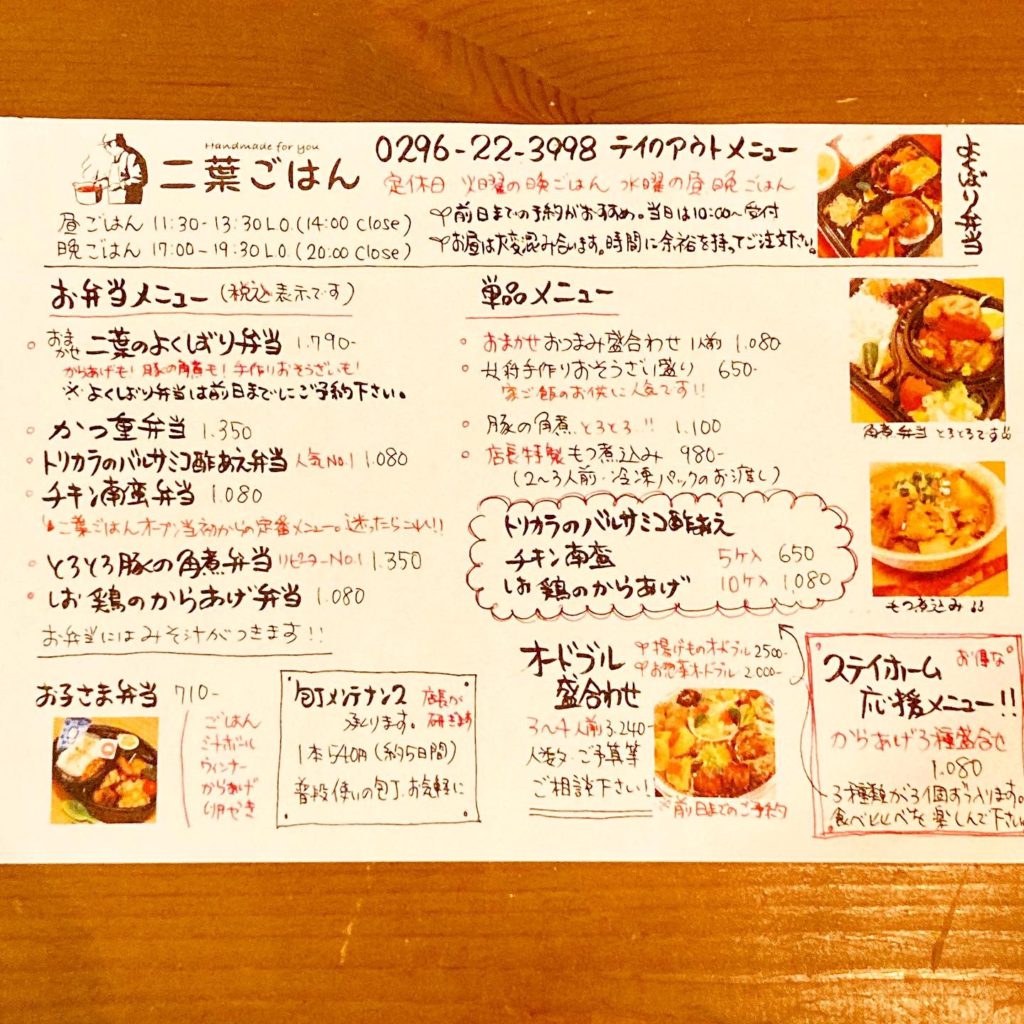 Handmade for you
二葉ごはん
0296-22-3998 テイクアウトメニュー
定休日 火曜の晩ごはん 水曜の昼晩ごはん
昼ごはん 11:30-13:30 L.O.(14:00 Close)
晩ごはん 17:00-19:30 L.O.(20:00 Close)
前日までの予約がおすすめ。当日は10:00〜受付
お昼は大変混み合います。時間に余裕を持ってご注文下さい。
よくばり弁当
お弁当メニュー(税込表示です)
おまかせ 二葉のよくばり弁当 1.790-
からあげも!豚の角煮も!手作りおそうざいも!
※よくばり弁当は前日までにご予約下さい。
かつ重弁当 1.350
トリカラのバルサミコ酢あえ弁当 人気No.1 1.080
チキン南蛮弁当 1.080
二葉ごはんオープン当初からの定番メニュー。迷ったらこれ!!
とろとろ豚の角煮弁当 リピーターNo.1 1.350
しお鶏のからあげ弁当 1.080
お弁当にはみそ汁がつきます!!
単品メニュー
おまかせおつまみ盛合わせ 1人前 1.080
女将手作りおそうざい盛り 650-
家ご飯のお供に人気です!!
豚の角煮 とろとろ!! 1.100
店長特製もつ煮込み 980-
(2〜3人前・冷凍パックのお渡し)
トリカラのバルサミコ酢あえ
チキン南蛮 5ケ入 650
しお鶏のからあげ 10ケ入 1,080
角煮弁当 とろとろです
もつ煮込み
お子さま弁当 710-
ごはん
ミートボール
ウィンナー
からあげ
卵やき
包丁メンテナンス 店長が研ぎます
承ります。
1本540円(約5日間)
普段使いの包丁、お気軽に
オードブル
盛合わせ
揚げものオードブル 2500-
お惣菜オードブル 2.000-
3〜4人前 3.240-
人数・ご予算等
ご相談下さい!
※前日までのご予約
ステイホーム お得な
応援メニュー!!
からあげ3種盛合せ
1.080
3種類が3個ずつ入ります。
食べ比べを楽しんで下さい